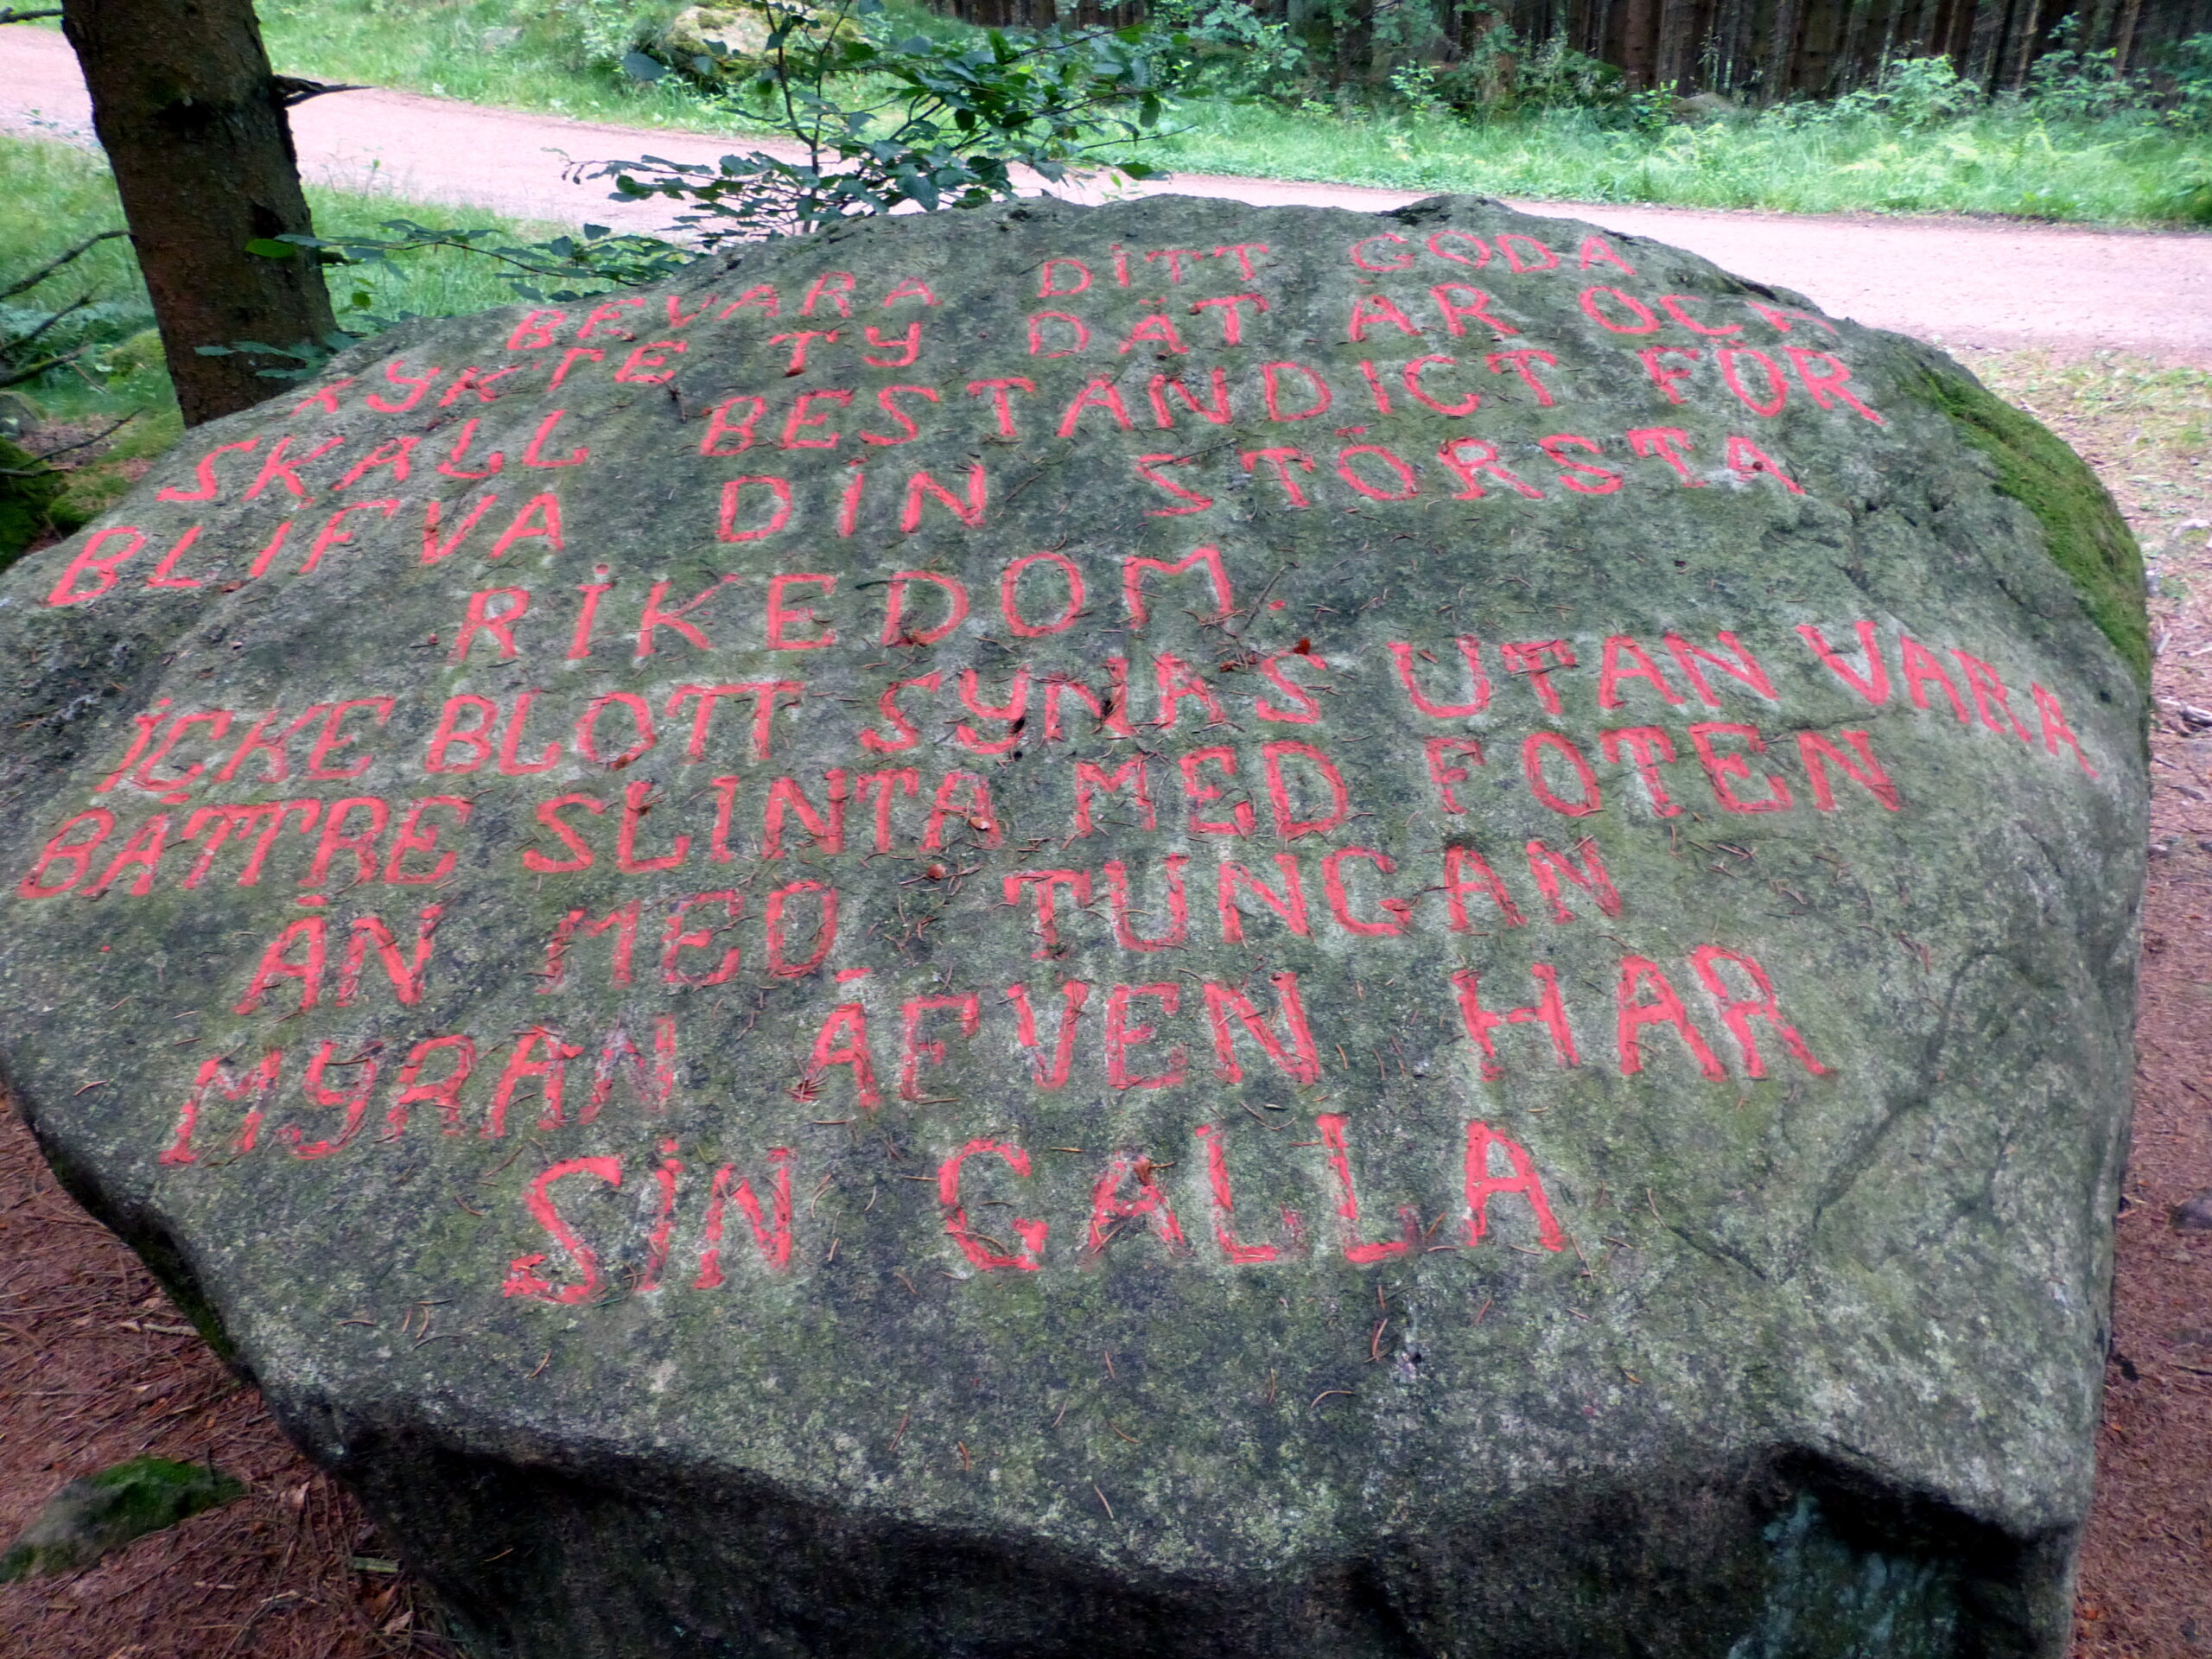 BEVARA DITT GODA
RYKTE TY DÄT ÄR OCH
SKALL BESTÄNDICT FÖR
BLIFVA DIN STÖRSTA
RIKEDOM.
ICKE BLOTT SYNAS UTAN VARA
BÄTTRE SLINTA MED FOTEN
ÄN MED TUNGAN
MYRAN ÄFVEN HAR
SIN GALLA